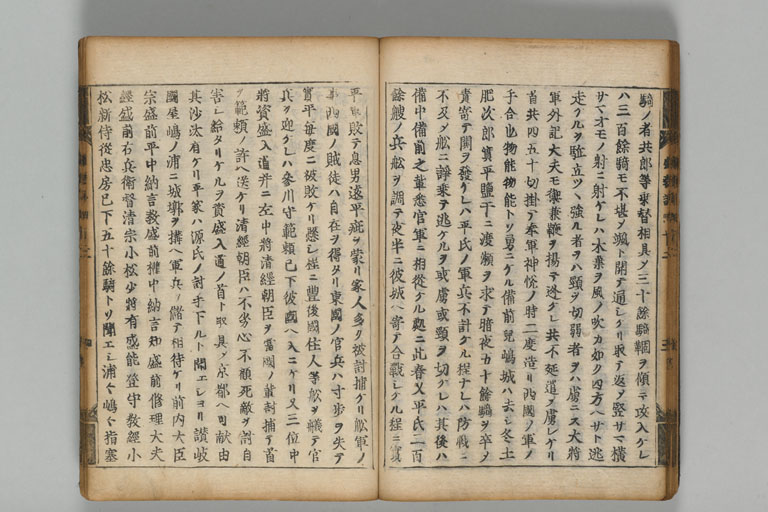 騎ノ者共郎等乗替相具メ三十餘騎轡ヲ傾テ攻入ケレ
ハ三百餘騎モ不堪メ颯ト開テ通シケリ取テ返メ竪サマ横
サマオモノ射ニ射ケレハ木葉ヲ風ノ吹カ如ク四方ヘサト逃
走ケルヲ駈立ツヽ強ル者ヲハ頸ヲ切弱者ヲハ虜ニス大将
軍外記大夫モ鞭ヲ揚テ逃ケレ共不延遁メ虜レケリ
首共四五十切掛テ奉軍神悦ノ時二度造リ西國ノ軍ノ
手合也物能物能トソ勇ニケル備前兒嶋城ハ去シ冬土
肥次郎實平鹽干ニ渡瀬ヲ求テ暗夜カ十餘騎ヲ卒メ
貴寄テ關ヲ發ケレハ平氏ノ軍兵不計ケル程ナレハ防戦ニ
不及メ舩ニ諍乗テ逃ケルヲ或虜或頸ヲ切ケレハ其後ハ
備中備前之輩悉官軍ニ相從ケル處ニ此春又平氏二百
餘艘ノ兵舩ヲ調テ夜半ニ彼城ヘ寄テ合戦シケル程ニ實
平軍敗テ息男遠平疵ヲ蒙リ家人多ク被討捕ケリ舩軍ノ
事西國ノ賊徒ハ自在ヲ得タリ東國ノ官兵ハ寸歩ヲ失テ
實平毎度ニ被敗ケリ懸シ程ニ豊後國住人等舩ヲ艤テ官
兵ヲ迎ケレハ參川守範頼已下彼國ヘ入ニケリ又三位中
將資盛入道并ニ左中將清經朝臣ヲ當國ノ輩討捕テ首
ヲ範頼ノ許ヘ送ケリ清經朝臣ハ不劣心不顧死敵ヲ討自
害シ給タリケルヲ資盛入道ノ首ト取具メ京都ヘ可献由
其沙汰有ケリ平家ハ源氏ノ討手下ルト聞エシヨリ讃岐
國屋嶋ノ浦ニ城郭ヲ搆ヘ軍兵ヲ儲テ相待ケリ前内大臣
宗盛前平中納言教盛前權中納言知盛前修理大夫
經盛前右兵衛督清宗小松少將有盛能登守教經小
松新侍從忠房已下五十餘騎トソ聞エシ浦々嶋々指塞